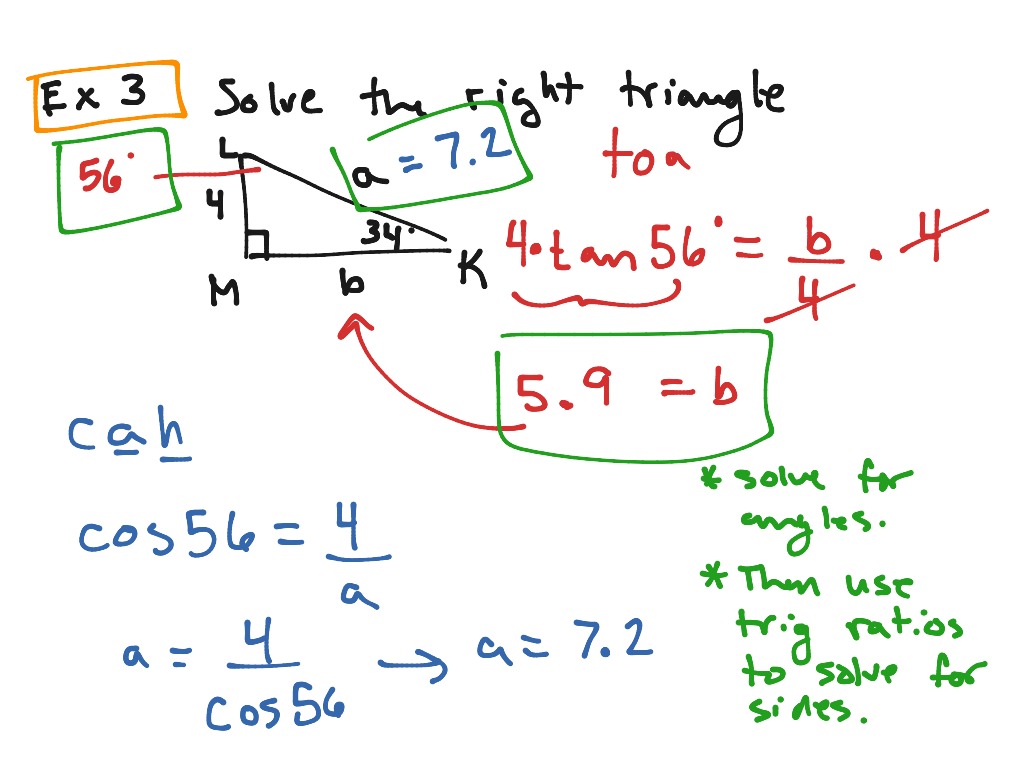 Ex 3 Solve the right triangle
56°
L
a = 7.2
toa
4
34°
M
b
K
4·tan 56° = b/4 · 4
5.9 = b
cah
cos56 = 4/a
a = 4/cos56 → a = 7.2
* solve for
angles.
* Then use
trig ratios
to solve for
sides.